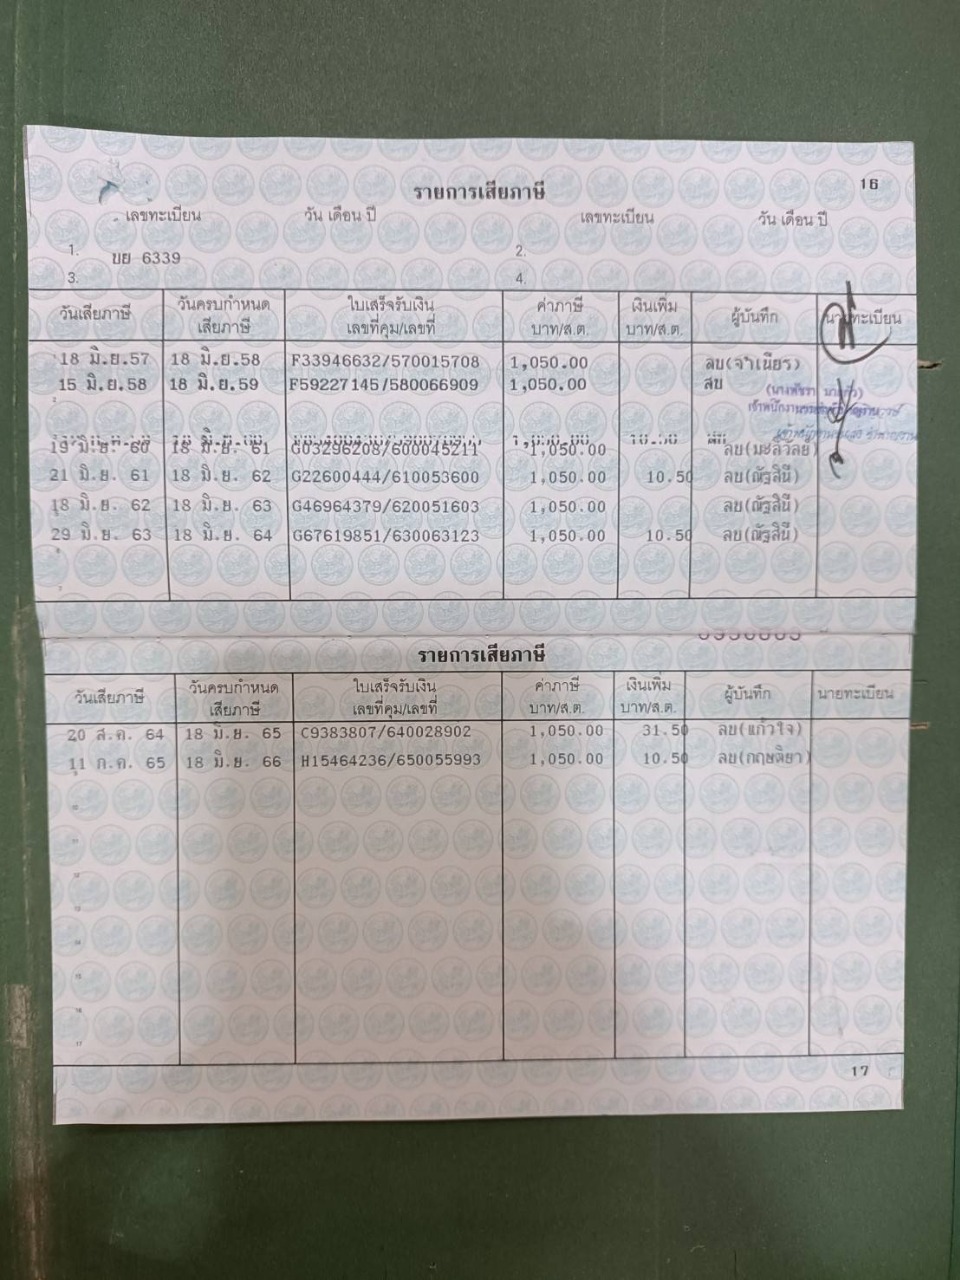 16
รายการเสียภาษี
เลขทะเบียน วัน เดือน ปี เลขทะเบียน วัน เดือน ปี
1. บย 6339 2.
3. 4.
วันเสียภาษี วันครบกำหนดเสียภาษี ใบเสร็จรับเงิน เลขที่คุม/เลขที่ ค่าภาษี บาท/ส.ต. เงินเพิ่ม บาท/ส.ต. ผู้บันทึก นายทะเบียน
18 มิ.ย.57 18 มิ.ย.58 F33946632/570015708 1,050.00 ลบ(จำเนียร)
15 มิ.ย.58 18 มิ.ย.59 F59227145/580066909 1,050.00 สบ
19 มิ.ย. 60 18 มิ.ย. 61 G03296208/600045211 1,050.00 ลบ(มะลิวัลย์)
21 มิ.ย. 61 18 มิ.ย. 62 G22600444/610053600 1,050.00 10.50 ลบ(ณัฐสินี)
18 มิ.ย. 62 18 มิ.ย. 63 G46964379/620051603 1,050.00 ลบ(ณัฐสินี)
29 มิ.ย. 63 18 มิ.ย. 64 G67619851/630063123 1,050.00 10.50 ลบ(ณัฐสินี)
รายการเสียภาษี
วันเสียภาษี วันครบกำหนดเสียภาษี ใบเสร็จรับเงิน เลขที่คุม/เลขที่ ค่าภาษี บาท/ส.ต. เงินเพิ่ม บาท/ส.ต. ผู้บันทึก นายทะเบียน
20 ส.ค. 64 18 มิ.ย. 65 C9383807/640028902 1,050.00 31.50 ลบ(แก้วใจ)
11 ก.ค. 65 18 มิ.ย. 66 H15464236/650055993 1,050.00 10.50 ลบ(กฤษลิยา)
17